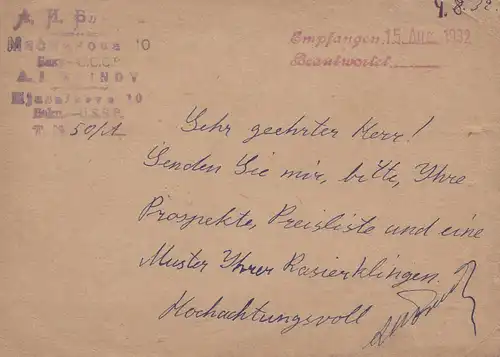 4.8.32.
А. И.
10
Баку - С.С.С.Р
Baku. U.S.S.R.
T. № 50/1
Empfangen 15. Aug. 1932
Beantwortet
Sehr geehrter Herr!
Senden Sie mir, bitte, Ihre
Prospekte, Preisliste und eine
Muster Ihrer Rasierklingen.
Hochachtungsvoll